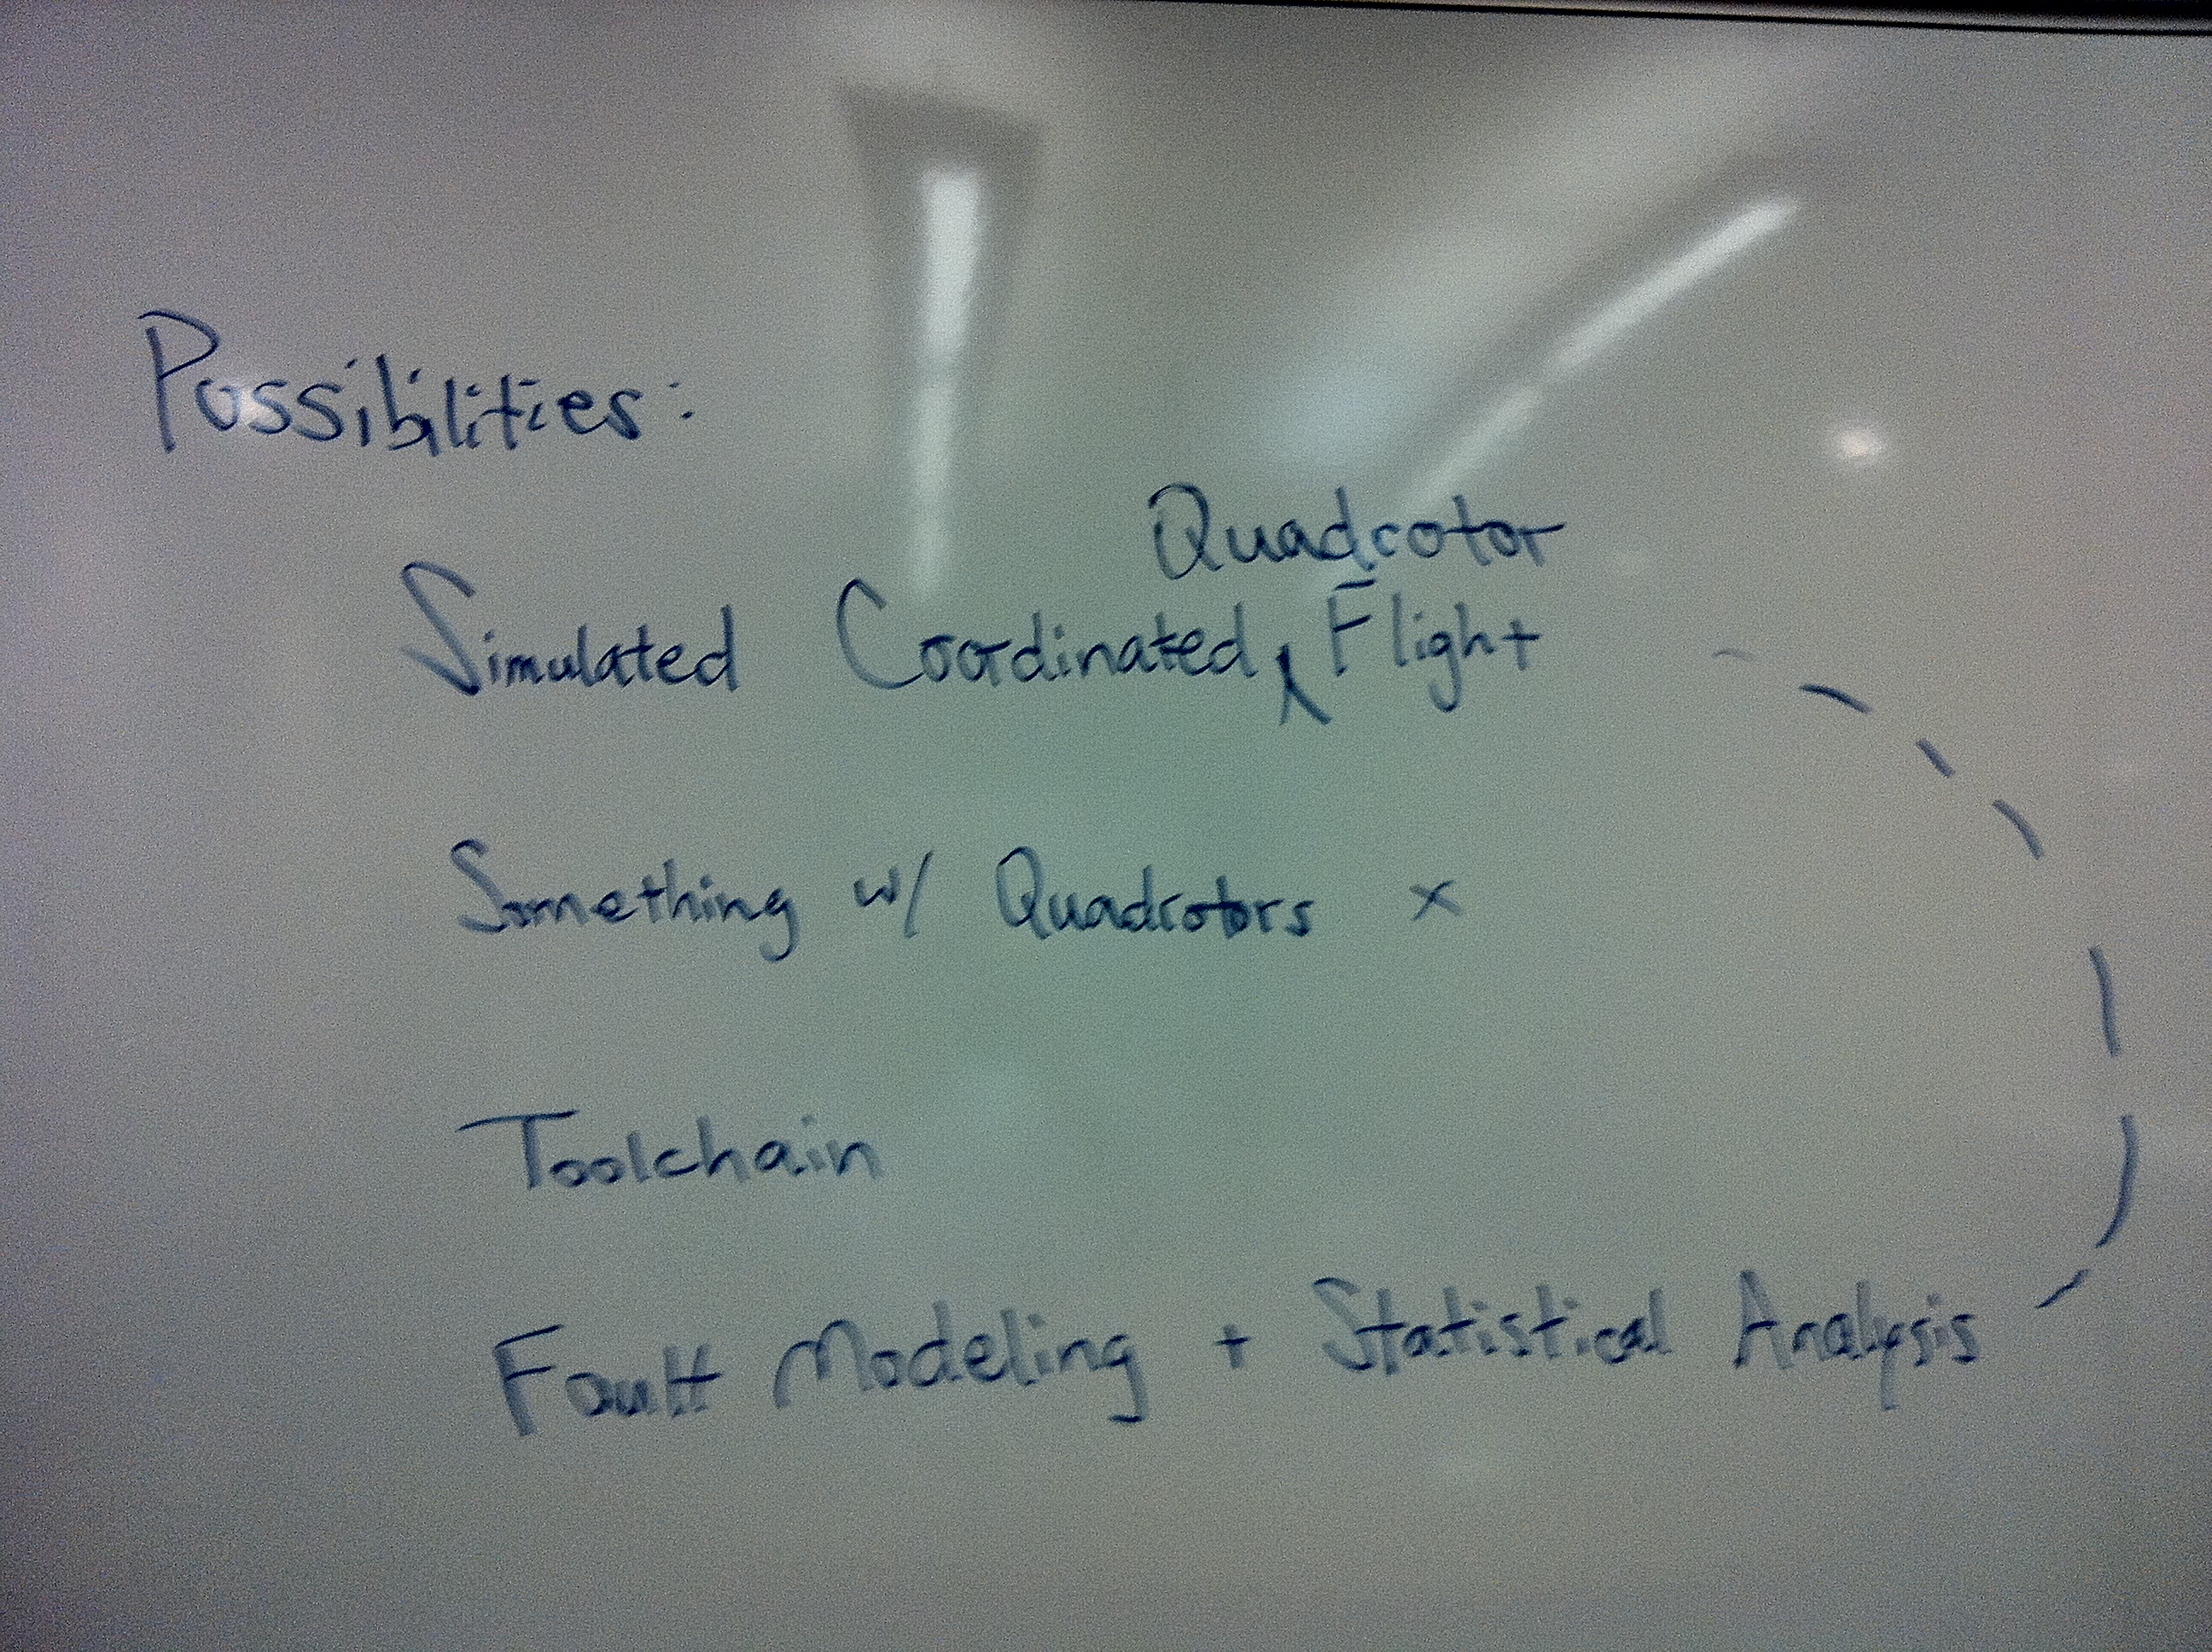 Possibilities:
Quadrotor
Simulated Coordinated Flight
Something w/ Quadrotors x
Toolchain
Fault Modeling + Statistical Analysis